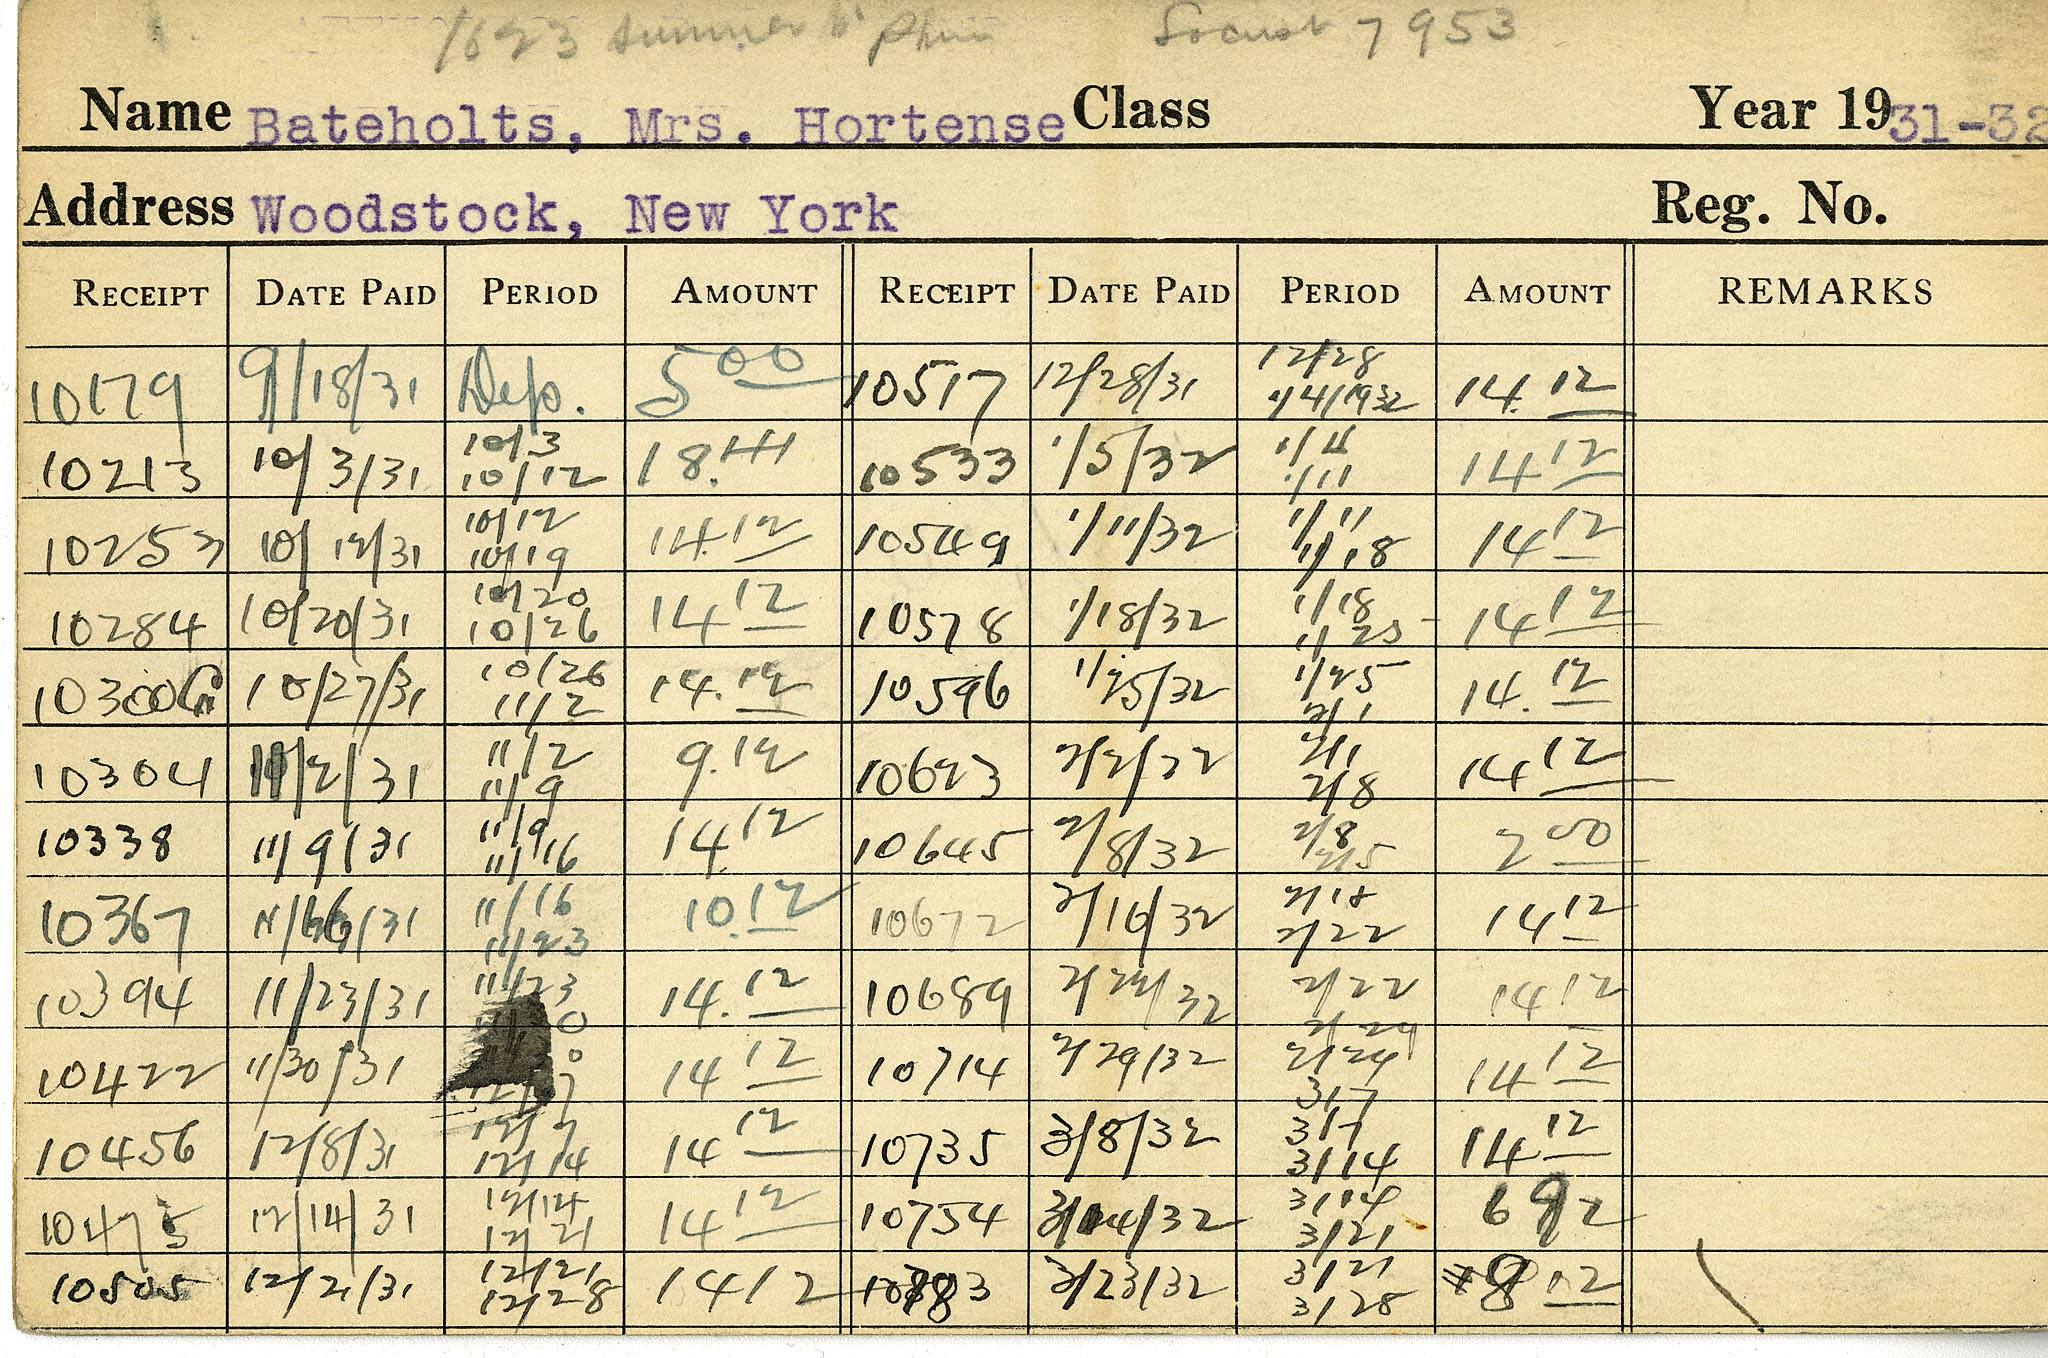 1623 Summer St Phila Locust 7953
Name Bateholts, Mrs. Hortense Class Year 1931-32
Address Woodstock, New York Reg. No.
RECEIPT DATE PAID PERIOD AMOUNT RECEIPT DATE PAID PERIOD AMOUNT REMARKS
10179 9/18/31 Dep. 5 00 10517 12/28/31 12/28 1/4/1932 14.12
10213 10/3/31 10/3 10/12 18.44 10533 1/5/32 1/4 1/11 14 12
10253 10/12/31 10/12 10/19 14.12 10549 1/11/32 1/11 1/18 14 12
10284 10/20/31 10/20 10/26 14 12 10578 1/18/32 1/18 1/25 14 12
10/27/31 10/26 11/2 14.12 10596 1/25/32 1/25 2/1 14.12
10304 11/2/31 11/2 11/9 9.12 10623 2/2/32 2/1 2/8 14 12
10338 11/9/31 11/9 11/16 14.12 10645 2/8/32 2/8 2/15 2 00
10367 11/16/31 11/16 11/23 10.12 10672 2/16/32 2/22 14 12
10394 11/23/31 11/23 11/30 14.12 10689 2/24/32 2/22 2/29 14 12
10422 11/30/31 14 12 10714 2/29/32 2/29 3/7 14 12
10456 12/8/31 12/7 12/14 14 12 10735 3/8/32 3/7 3/14 14 12
10475 12/14/31 12/14 12/21 14 12 10754 3/14/32 3/14 3/21 6 92
10505 12/21/31 12/21 12/28 14 12 3/23/32 3/21 3/28 8.12